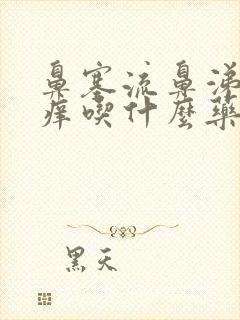 鼻塞流鼻涕
痒喫什麼藥
黑天